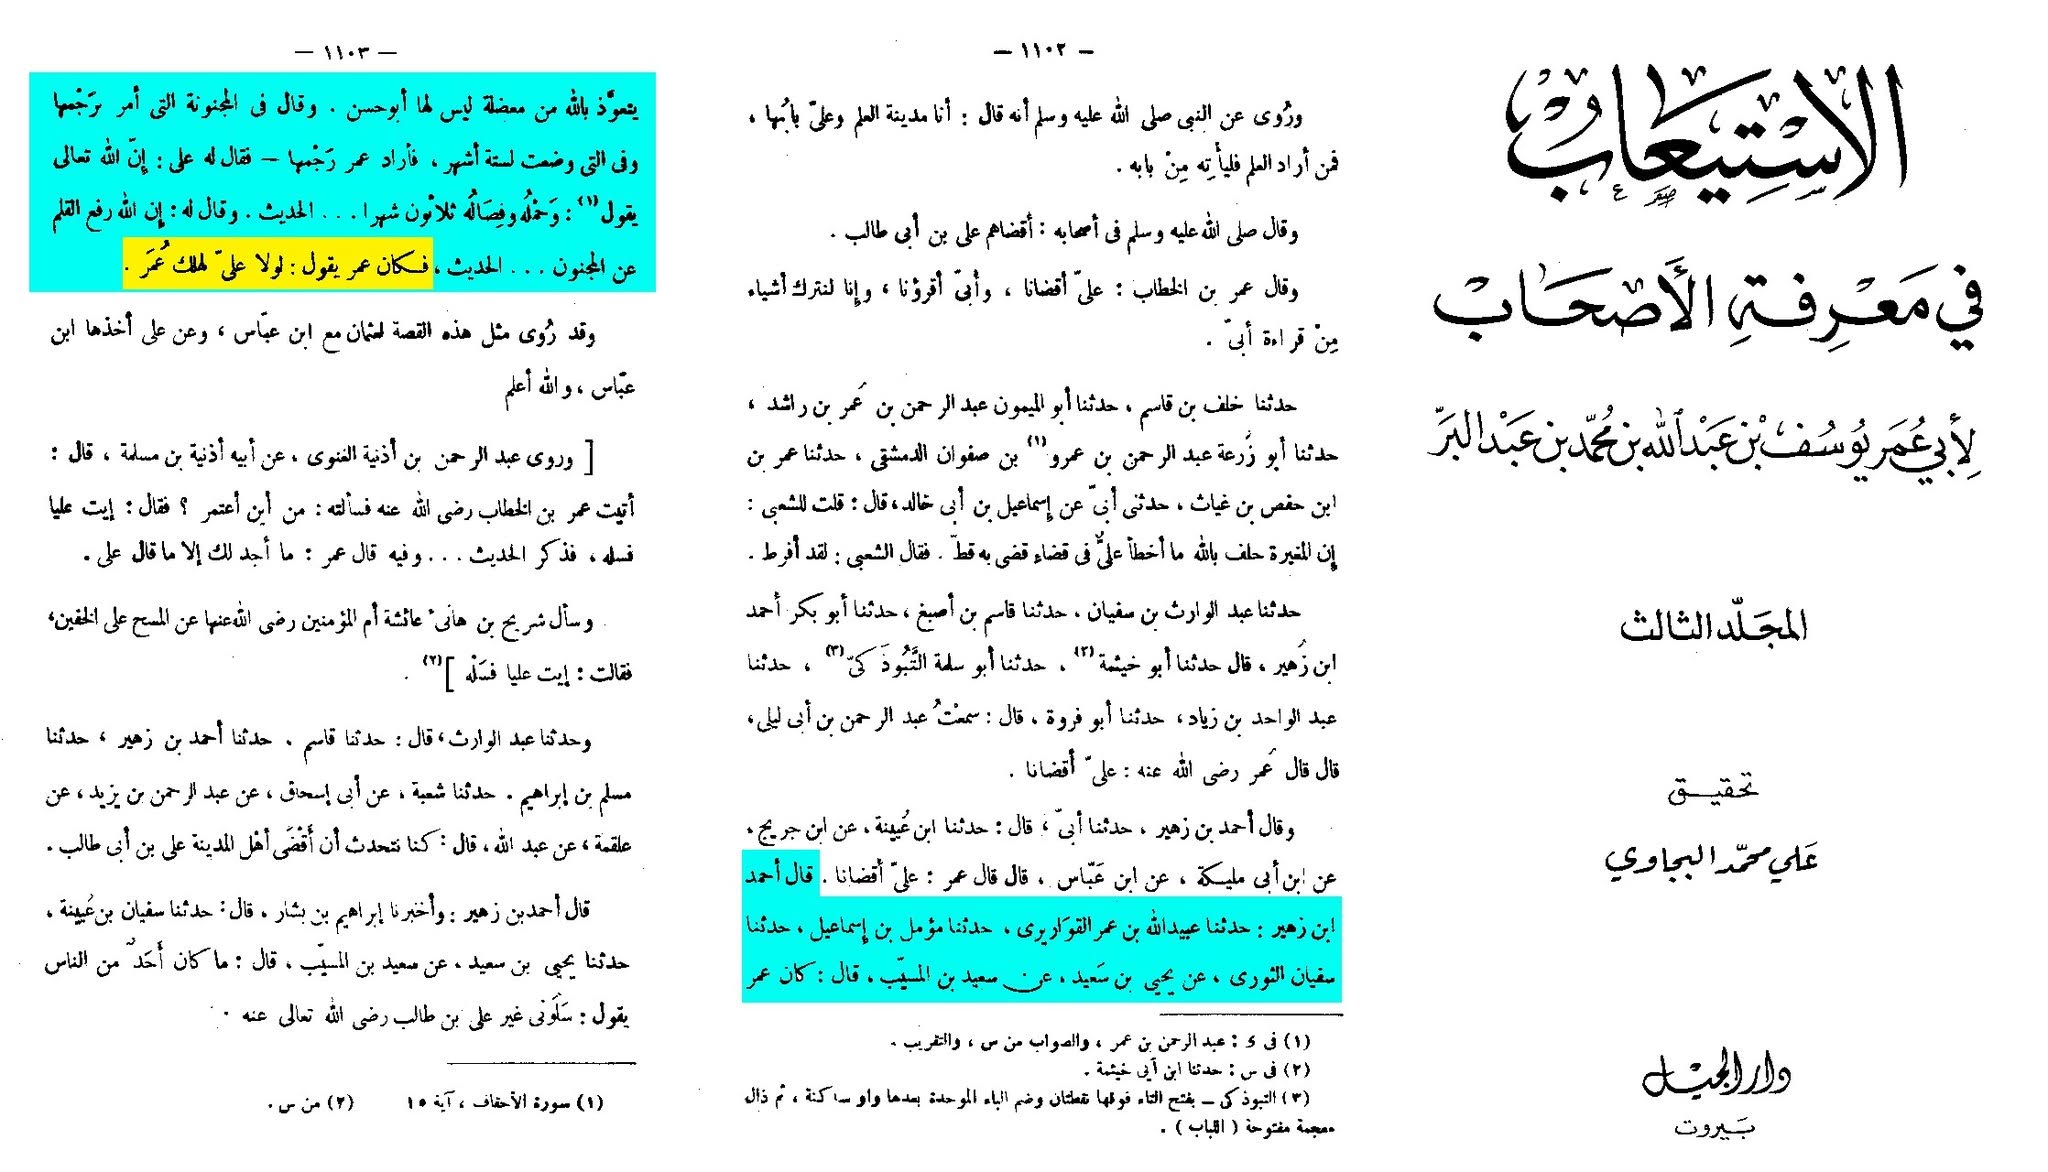 الاستيعاب
في معرفة الأصحاب
لأبي عمر يوسف بن عبد الله بن محمد بن عبد البر
المجلد الثالث
تحقيق
علي محمد البجاوي
دار الجيل
بيروت
— ١١٠٢ —
ورُوى عن النبى صلى الله عليه وسلم أنه قال : أنا مدينة العلم وعلىّ بابُها ،
فمن أراد العلم فليأته مِنْ بابه .
وقال صلى الله عليه وسلم فى أصحابه : أقضاهم على بن أبى طالب .
وقال عمر بن الخطاب : علىّ أقضانا ، وأبىّ أقرؤنا ، وإنا لنترك أشياء
مِنْ قراءة أبىّ .
حدثنا خلف بن قاسم ، حدثنا أبو الميمون عبد الرحمن بن عمر بن راشد ،
حدثنا أبو زُرعة عبد الرحمن بن عمرو (١) بن صفوان الدمشقى ، حدثنا عمر بن
ابن حفص بن غياث ، حدثنى أبىّ عن إسماعيل بن أبى خالد، قال : قلت للشعبى :
إن المغيرة حلف بالله ما أخطأ علىٌّ فى قضاء قضى به قطّ . فقال الشعبى : لقد أفرط .
حدثنا عبد الوارث بن سفيان ، حدثنا قاسم بن أصبغ ، حدثنا أبو بكر أحمد
ابن زُهير ، قال حدثنا أبو خيثمة (٢) ، حدثنا أبو سلمة التَّبُوذَكىّ (٣) ، حدثنا
عبد الواحد بن زياد، حدثنا أبو فروة ، قال : سمعتُ عبد الرحمن بن أبى ليلى،
قال قال عمر رضى الله عنه : علىّ أقضانا .
وقال أحمد بن زهير ، حدثنا أبىّ ، قال : حدثنا ابن عُيينة ، عن ابن جريج ،
عن ابن أبى مليكة ، عن ابن عَبّاس ، قال قال عمر : علىّ أقضانا . قال أحمد
ابن زهير : حدثنا عبيدالله بن عمر القوَاريرى ، حدثنا مؤمل بن إسماعيل ، حدثنا
سفيان الثورى ، عن يحيى بن سَعيد ، عن سعيد بن المسيّب ، قال : كان عمر
(١) فى ى : عبد الرحمن بن عمر ، والصواب من س ، والتقريب .
(٢) فى س : حدثنا ابن أبى خيثمة .
(٣) التبوذكى — بفتح التاء فوقها نقطتان وضم الباء الموحدة بعدها واو ساكنة ، ثم ذال
معجمة مفتوحة ( اللباب ) .
— ١١٠٣ —
يتعوَّذ بالله من معضلة ليس لها أبوحسن . وقال فى المجنونة التى أمر برَجْمها
وفى التى وضعت لستة أشهر ، فأراد عمر رَجْمها — فقال له على : إنّ الله تعالى
يقول (١) : وَحَمْلُه وفِصَالُه ثلاثون شهرا ... الحديث . وقال له : إن الله رفع القلم
عن المجنون ... الحديث ، فكان عمر يقول : لولا علىّ لهلك عُمَر .
وقد رُوى مثل هذه القصة لعثمان مع ابن عبّاس ، وعن على أخذها ابن
عبّاس ، والله أعلم
[ وروى عبد الرحمن بن أذنية الغنوى ، عن أبيه أذنية بن مسلمة ، قال :
أتيت عمر بن الخطاب رضى الله عنه فسألته : من أين أعتمر ؟ فقال : إيت عليا
فسله ، فذكر الحديث ... وفيه قال عمر : ما أجد لك إلا ما قال على .
وسأل شريح بن هانىء عائشة أم المؤمنين رضى الله عنها عن المسح على الخفين،
فقالت : إيت عليا فسَلْه ] (٢) .
وحدثنا عبد الوارث، قال : حدثنا قاسم . حدثنا أحمد بن زهير ، حدثنا
مسلم بن إبراهيم . حدثنا شعبة ، عن أبى إسحاق ، عن عبد الرحمن بن يزيد ، عن
علقمة ، عن عبد الله ، قال : كنا نتحدث أن أَقْضَى أهْل المدينة على بن أبى طالب .
قال أحمدبن زهير : وأخبرنا إبراهيم بن بشار ، قال : حدثنا سفيان بن عُيينة ،
حدثنا يحيى بن سعيد ، عن سعيد بن المسيّب ، قال : ما كان أحَدٌ من الناس
يقول : سَلُونى غير على بن طالب رضى الله تعالى عنه .
(١) سورة الأحقاف ، آية ١٥ (٢) من س .